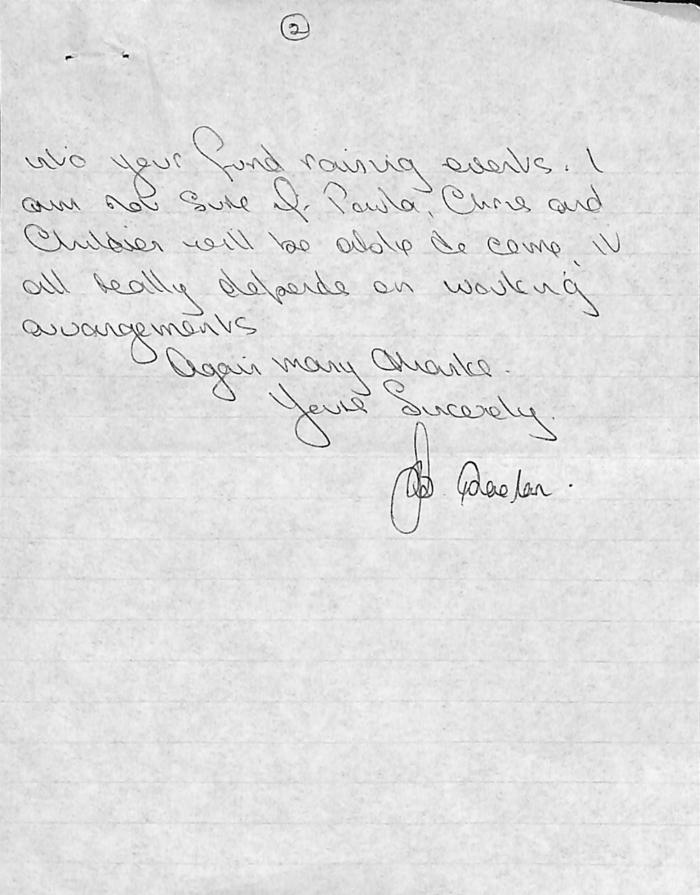 2
into your fund raising events. I
am not sure if Paula, Chris and
Children will be able to come, it
all really depends on working
arrangements
Again many thanks.
Yours Sincerely.